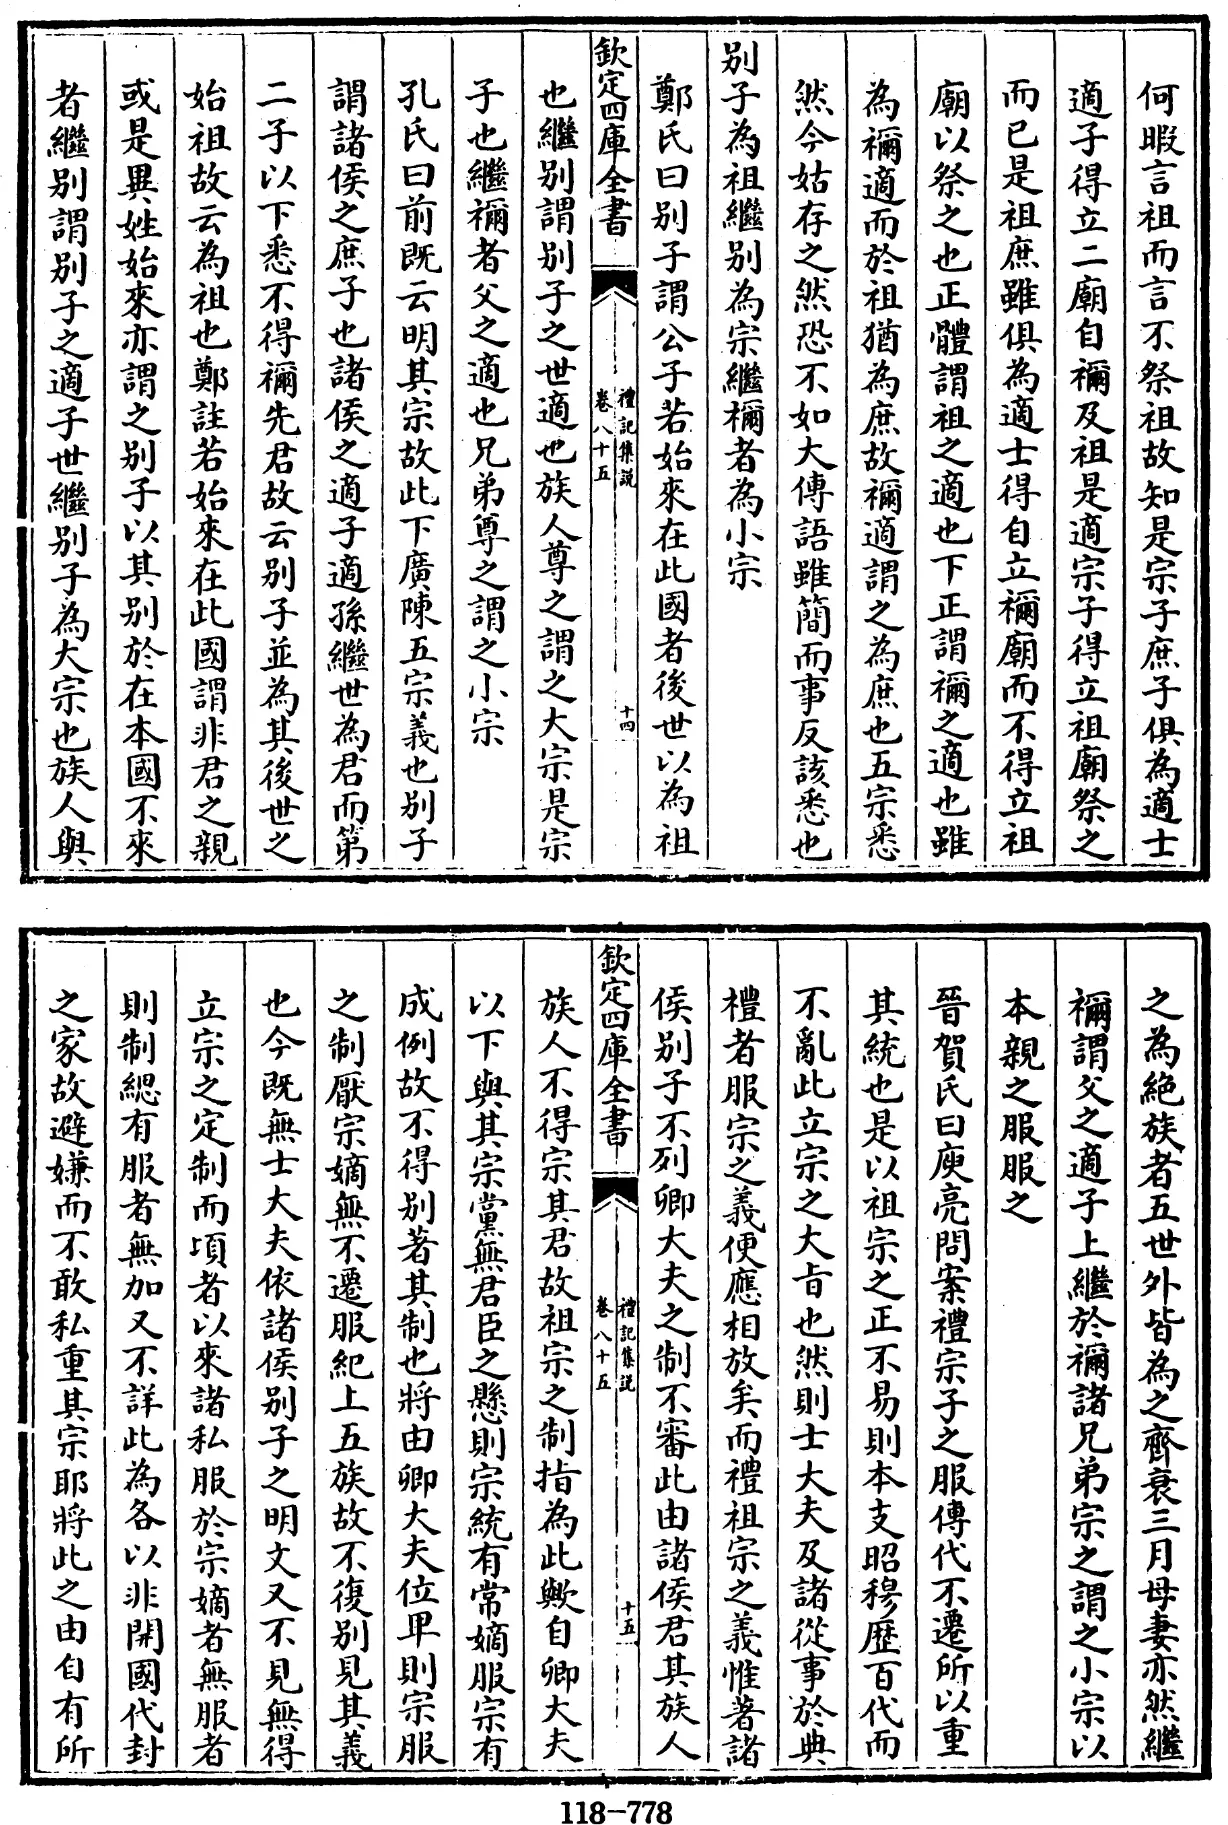 何暇言祖而言不祭祖故知是宗子庶子俱為適士
適子得立二廟自禰及祖是適宗子得立祖廟祭之
而已是祖庶雖俱為適士得自立禰廟而不得立祖
廟以祭之也正體謂祖之適也下正謂禰之適也雖
為禰適而於祖猶為庶故禰適謂之為庶也五宗悉
然今姑存之然恐不如大傳語雖簡而事反該悉也
别子為祖繼别為宗繼禰者為小宗
鄭氏曰别子謂公子若始來在此國者後世以為祖
欽定四庫全書
禮記集說
卷八十五
十四
也繼别謂别子之世適也族人尊之謂之大宗是宗
子也繼禰者父之適也兄弟尊之謂之小宗
孔氏曰前既云明其宗故此下廣陳五宗義也别子
謂諸侯之庶子也諸侯之適子適孫繼世為君而第
二子以下悉不得禰先君故云别子並為其後世之
始祖故云為祖也鄭註若始來在此國謂非君之親
或是異姓始來亦謂之别子以其别於在本國不來
者繼别謂别子之適子世繼别子為大宗也族人與
之為絶族者五世外皆為之齊衰三月母妻亦然繼
禰謂父之適子上繼於禰諸兄弟宗之謂之小宗以
本親之服服之
晉賀氏曰庾亮問案禮宗子之服傳代不遷所以重
其統也是以祖宗之正不易則本支昭穆歴百代而
不亂此立宗之大旨也然則士大夫及諸從事於典
禮者服宗之義便應相放矣而禮祖宗之義惟著諸
侯别子不列卿大夫之制不審此由諸侯君其族人
欽定四庫全書
禮記集說
卷八十五
十五
族人不得宗其君故祖宗之制指為此歟自卿大夫
以下與其宗黨無君臣之懸則宗統有常嫡服宗有
成例故不得别著其制也將由卿大夫位卑則宗服
之制厭宗嫡無不遷服紀上五族故不復别見其義
也今既無士大夫依諸侯别子之明文又不見無得
立宗之定制而頃者以來諸私服於宗嫡者無服者
則制緦有服者無加又不詳此為各以非開國代封
之家故避嫌而不敢私重其宗耶將此之由自有所
118-778